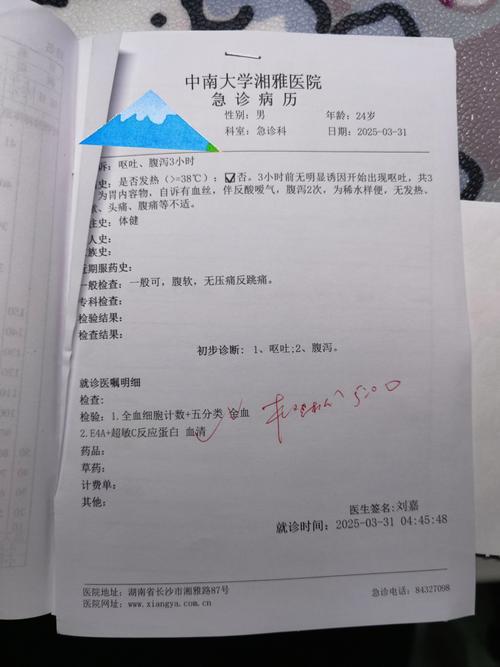 中南大学湘雅医院
急诊病历
性别：男 年龄：24岁
科室：急诊科 日期：2025-03-31
诉：呕吐、腹泻3小时
史：是否发热（>=38℃）；☑否。3小时前无明显诱因开始出现呕吐，共3
为胃内容物，自诉有血丝，伴反酸嗳气，腹泻2次，为稀水样便，无发热、
、头痛、腹痛等不适。
往史：体健
人史：
族史：
近期服药史：
一般检查：一般可，腹软，无压痛反跳痛。
专科检查：
检验结果：
检查结果：
初步诊断：1、呕吐;2、腹泻。
就诊医嘱明细
检查：
检验：1.全血细胞计数+五分类 全血
2.E4A+超敏C反应蛋白 血清
药品：
草药：
计费单：
其他：
医生签名:刘嘉
就诊时间：2025-03-31 04:45:48
医院地址：湖南省长沙市湘雅路87号 急诊电话：84327098
医院网址：www.xiangya.com.cn